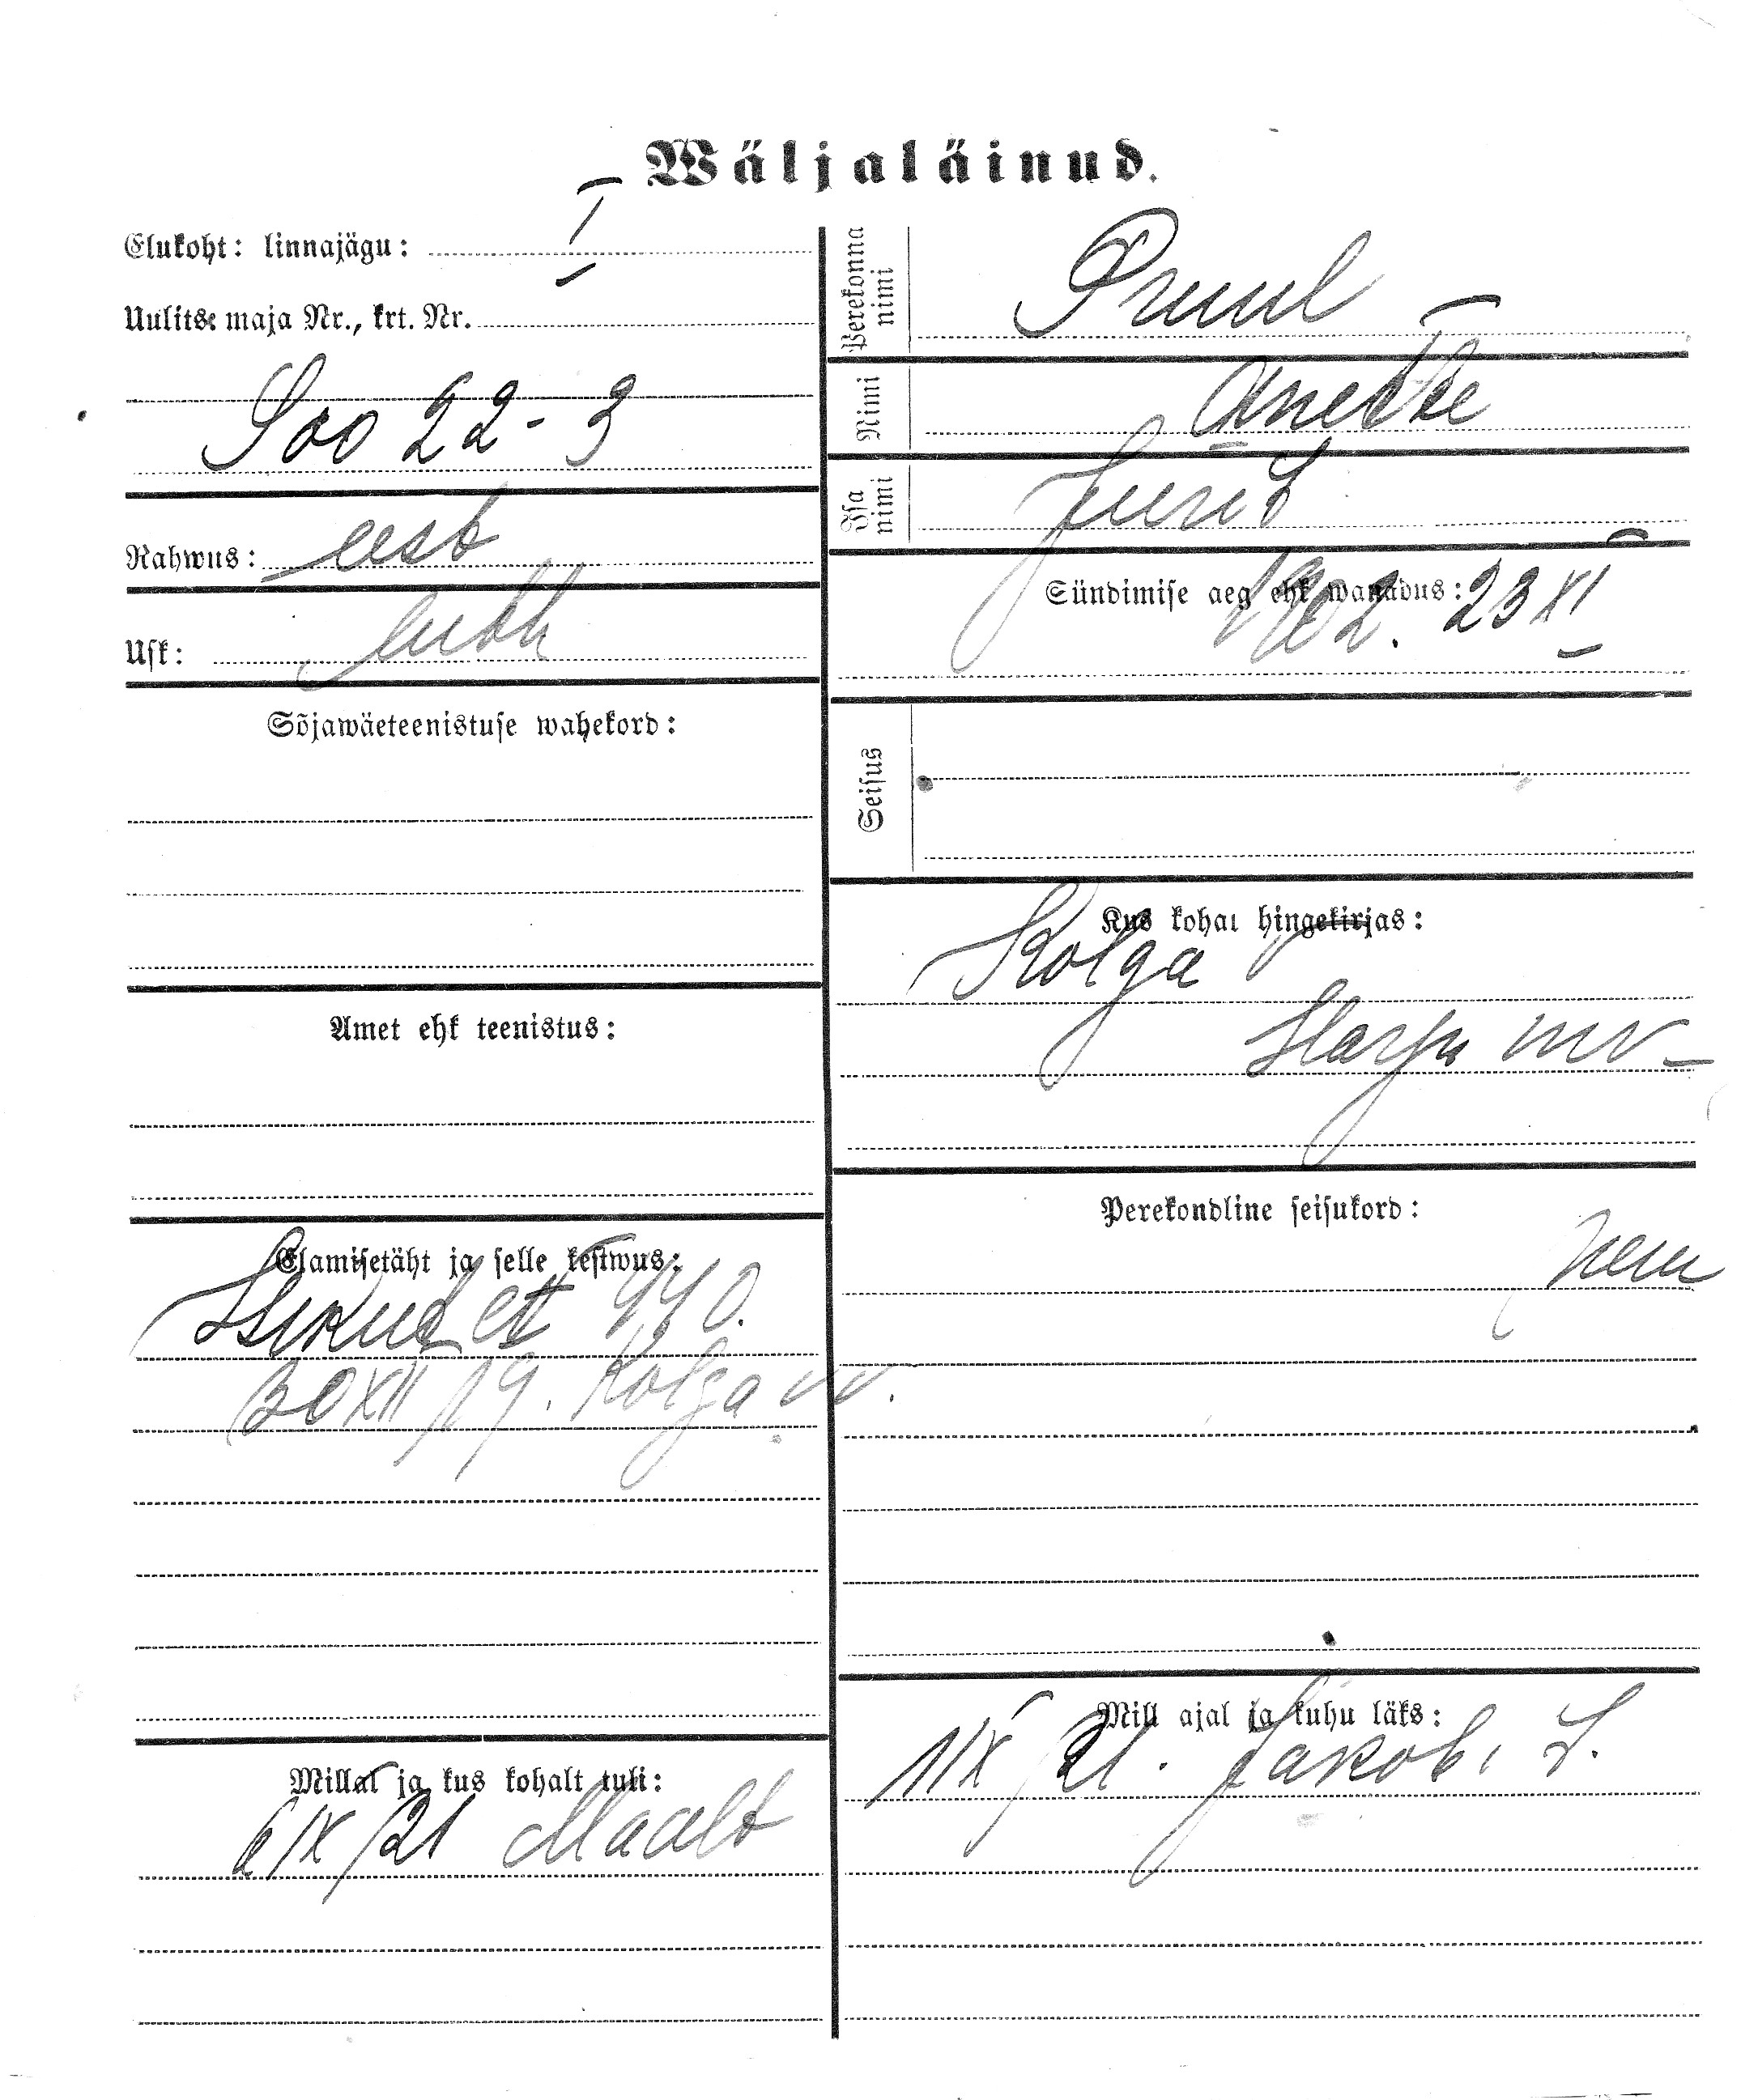 Wäljaläinud.
Elukoht: linnajägu: I
Uulitse maja Nr., krt. Nr.
Soo 22-3
Rahwus: eest
Usk: luth
Sõjawäeteenistuse wahekord:
Amet ehk teenistus:
Elamisetäht ja selle kestwus:
Isikut. tt 440.
30 XII 19. Kolga vv.
Millal ja kus kohalt tuli:
6/IX/21 Maalt
Perekonna nimi Pruul
Nimi Anette
Isa nimi
Sündimise aeg ehk wanadus:
1902. 23 XI
Seisus
Kus kohal hingekirjas:
Kolga v
Harju m v
Perekondline seisukord:
Mill ajal ja kuhu läks:
1/IX/21. Jakobi